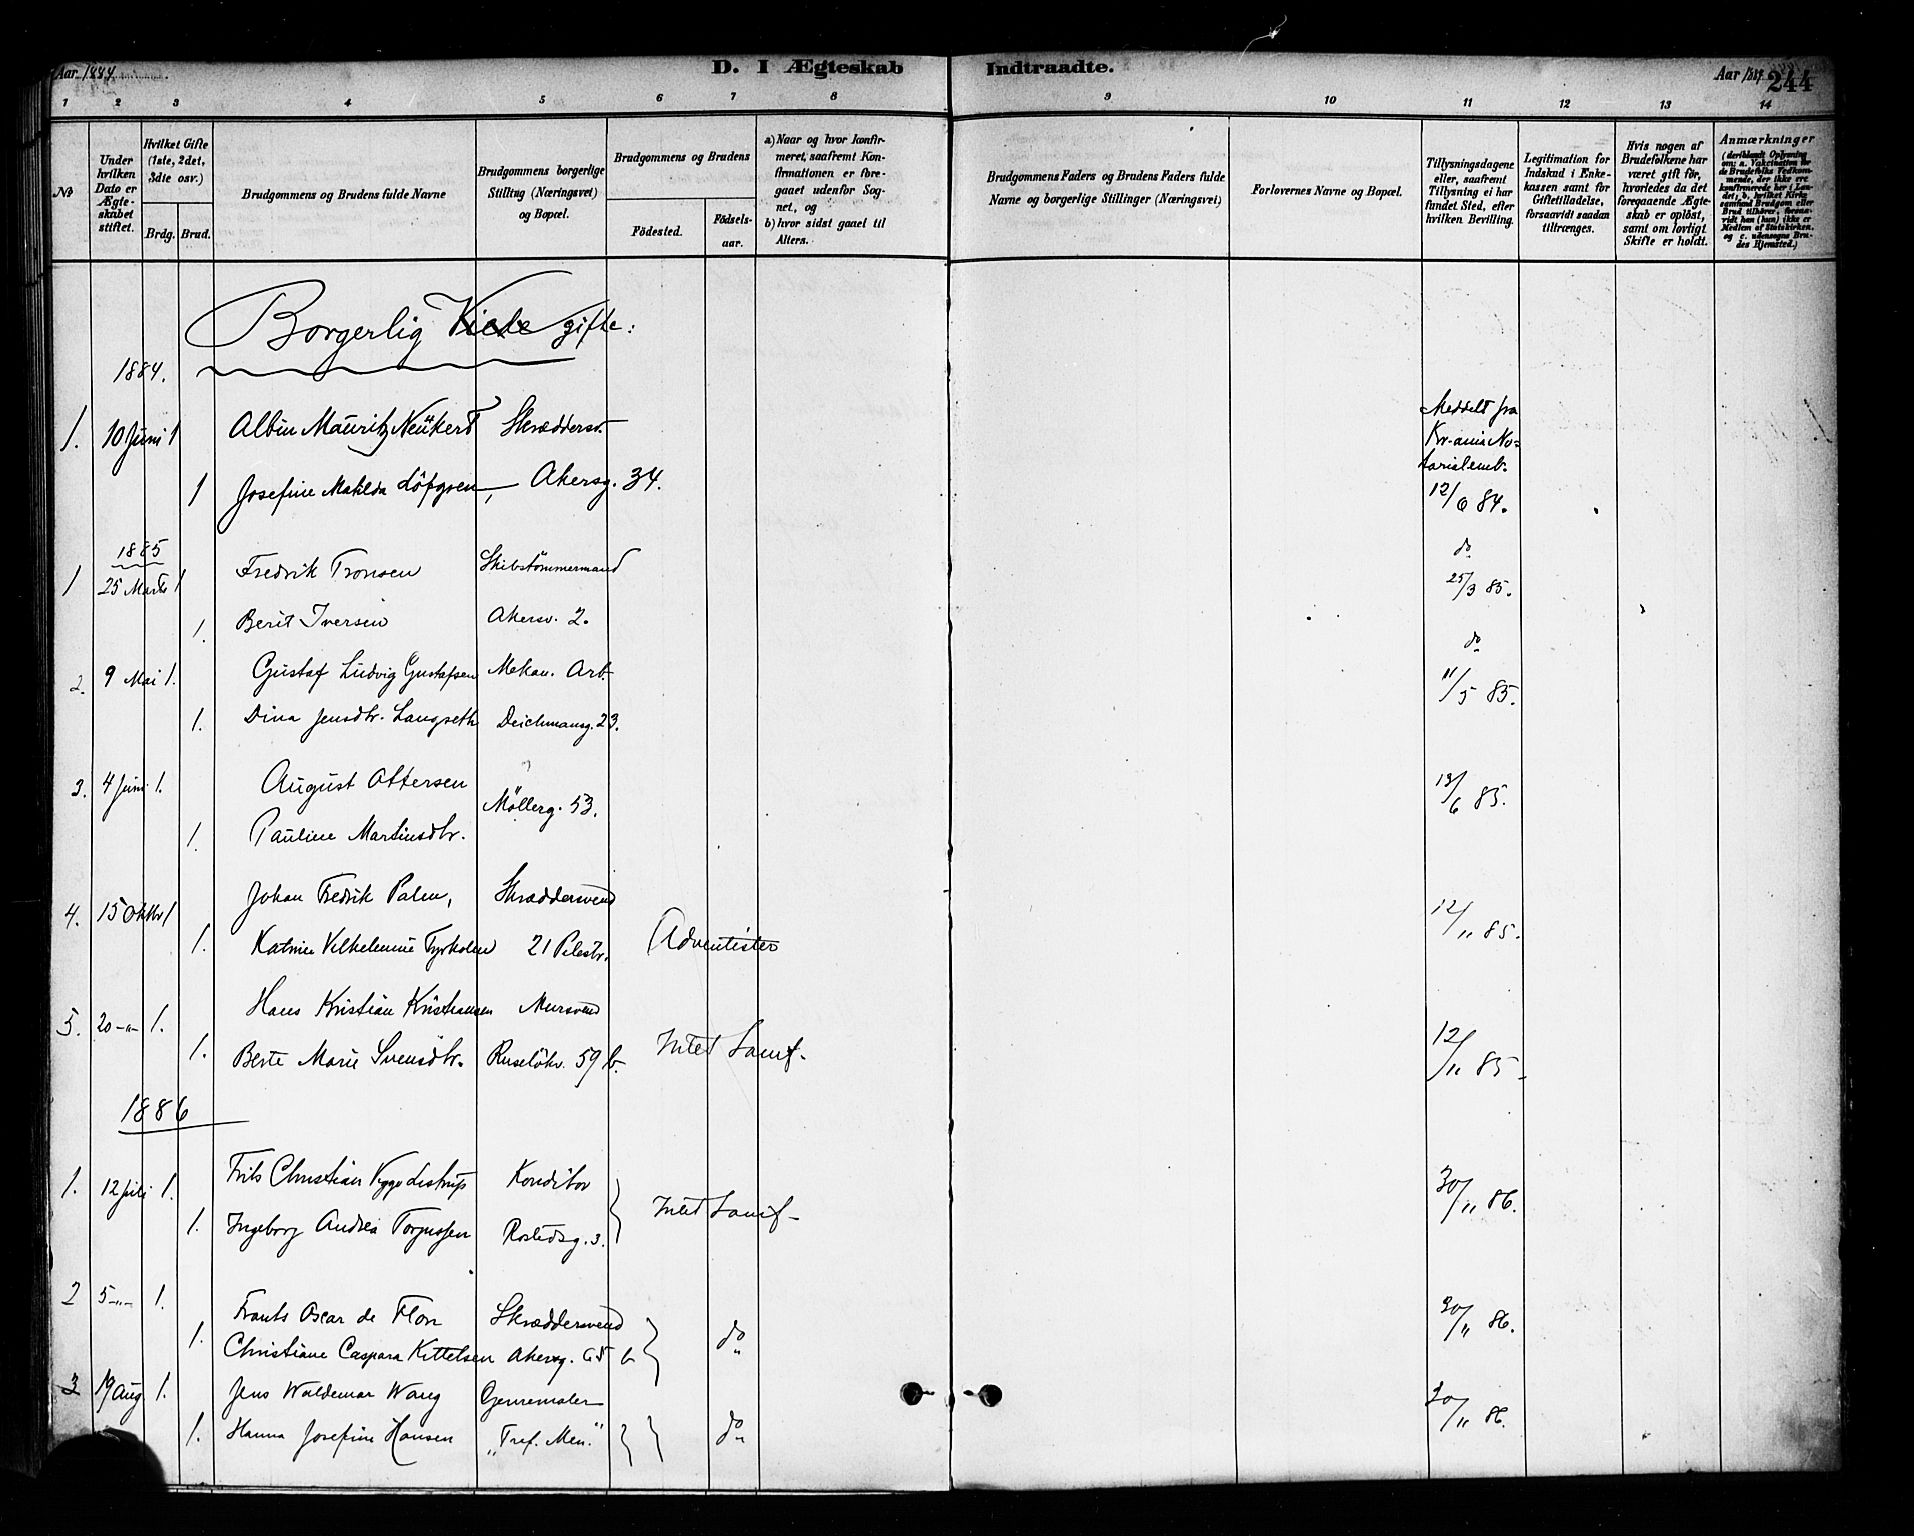 Aar 1884
D. I Ægteskab Indtraadte.
Aar 244
1 2 3 4 5 6 7 8 9 10 11 12 13 14
No
Under hvilken Dato er Ægteskabet stiftet.
Hvilket Gifte (1ste, 2det, 3die osv.)
Brdg. Brud.
Brudgommens og Brudens fulde Navne
Brudgommens borgerlige Stilling (Næringsvei) og Bopæl.
Brudgommens og Brudens
Fødested.
Fødsels-aar.
a) Naar og hvor konfirmeret, saafremt Konfirmationen er foregaaet udenfor Sognet, og
b) hvor sidst gaaet til Alters.
Brudgommens Faders og Brudens Faders fulde Navne og borgerlige Stillinger (Næringsvei)
Forlovernes Navne og Bopæl.
Tillysningsdagene eller, saafremt Tillysning ei har fundet Sted, efter hvilken Bevilling.
Legitimation for Indskud i Enkekassen samt for Giftetilladelse, forsaavidt saadan tiltrænges.
Hvis nogen af Brudefolkene har været gift før, hvorledes da det foregaaende Ægteskab er opløst, samt om lovligt Skifte er holdt.
Anmærkninger
(deriblandt Oplysning om: a. Vakcination for de Brudefolks Vedkommende, der ikke ere konfirmerede her i Landet, b. hvilket Kirkesamfund Brudgom eller Brud tilhører, forsaavidt han (hun) ikke er Medlem af Statskirken, og c. udensogns Brudes Hjemsted.)
Borgerlig Viede gifte:
1884.
1. 10 Juni 1 Albin Mauritz Neükert Skræddersv.
Meddelt fra Kr-ania Notarialemb.
1 Josefine Matilda Löfgren, Akersg. 34. 12/6 84.
1885
1 25 Marts 1 Fredrik Tronsen Skibstömmermand do 25/3 85.
1. Berit Iversen Akersv. 2.
2. 9 Mai 1. Gustaf Ludvig Gustafsen Mekan. Arb. do 11/5 85.
1. Dina Jensdtr. Langseth Deichmansg. 23.
3. 4 Juni 1. August Ottersen Møllerg. 53. 13/6 85.
1. Pauline Martinsdtr.
4. 15 Oktbr 1 Johan Fredrik Palen, Skræddersvend 12/11 85.
1. Katrine Vilhelmine Tyrholm 21 Pilestr. (Adventister
5. 20 -"- 1. Hans Kristian Kristiansen Mursvend 12/11 85
1. Berte Marie Svensdtr. Ruseløkv. 59 b. Intet Samf.
1886
1. 12 Juli 1. Frits Christian Viggo Listrup Konditor 30/11 86.
1. Ingeborg Andrea Torgussen Rostedsg. 3. Intet Samf-
2 5 -"- 1. Frants Oscar de Flon Skræddersvend 30/11 86.
1. Christiane Caspara Kittelsen Akersg. 65 b do
3 19 Aug 1. Jens Waldemar Wang Genremaler 30/11 86.
1. Hanna Josefine Hansen "Tref. Men." do